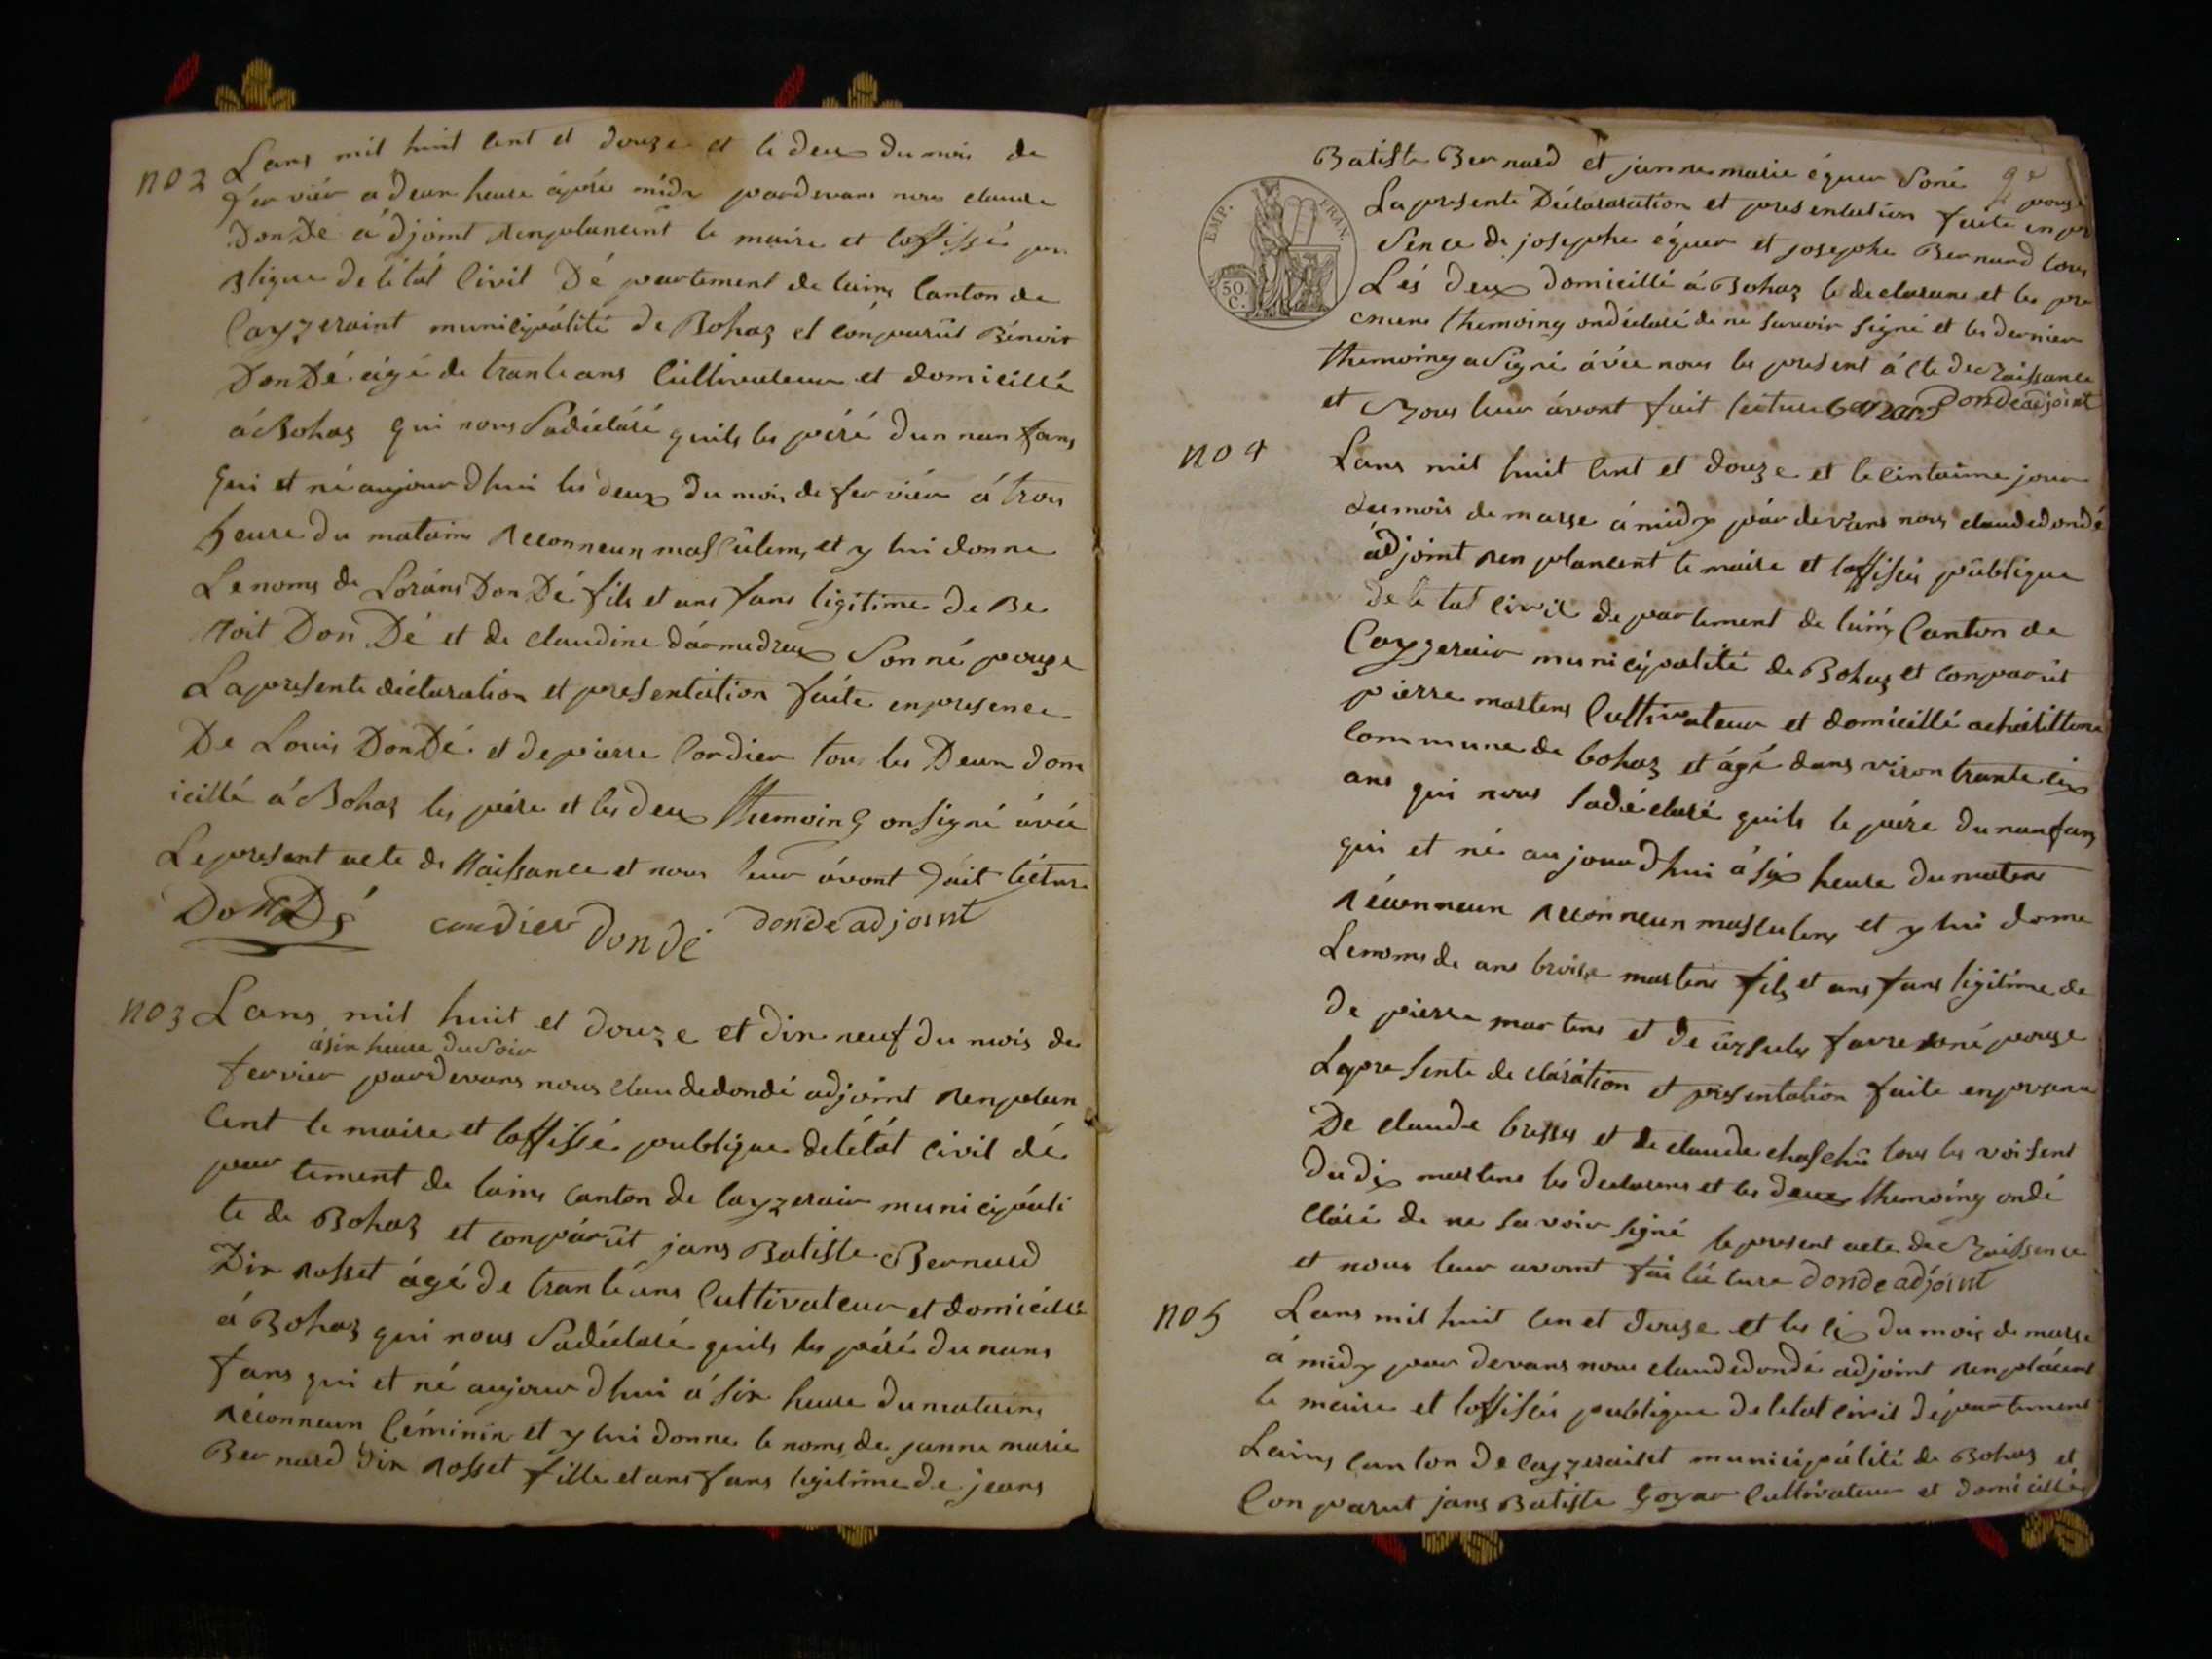 no 2 Lans mil huit Cent et douze et le deux du mois de
fér viér a deux heure áprés midy pardevans nous claude
DonDé ádjoint Renplancent le maire et loffissé pu
Bligue de létat Civil Dé partement de lains Canton de
Cayzeraint municipálité de Bohaz et cónparut Bénoit
DonDé ágé de trante ans Cultivateur et domicillé
á Bohaz qui nous Sadéclaré quils les péré dun nan fans
qui et né aujour dhui les deux du mois de fer viér á trois
heure du matains Reconneun masculens et y lui donne
Le noms de Lorans DonDé fils et ans fans ligitime de Be
noit Don Dé et de claudine dármedreux Son né pouze
La presente déclaration et presentation faite en presence
De Louis DonDé et de piérre Cordier tous les Deux dom
icillé á Bohaz les pére et les deux themoing on signé ávéc
Le present acte de Naissance et nous leur ávont fait lécture
DonDé cordier dondé donde adjoint
no 3 Lans mil huit et douze et dix neuf du mois de
á six heure du soir
fervier pardevans nous claudedondé adjoint Renplan
Cent le maire et loffissé publigue de létát Civil dé
par tement de lains Canton de cayzerair municipáli
te de Bohaz et conpárut jans Batiste Bernard
Dix Rosset ágé de trante ans Cultivateur et domicillé
á Bohaz qui nous Sadéclaré quils les péré du nans
fans qui et né aujour dhui á six heure du matains
Réconneun féminin et y lui donne le noms de janne marie
Bernard dix Rosset fille et ans fans légitime de jeans
Batiste Bernard et janne marie éguer Soné pouze
La presente Déclararation et presentation faite en pré
Sence de josephe éguer et josephe Bernard tous
Lés deux domicillé á Bohaz le declarans et les pre
EMP. FRAN.
50 C.
miere themoing ondéclaré de ne savoir signé et les dernier
themoing a signé ávéc nous les present ácte de Naissance
et Nous leur ávont fait lecture Bernard Donde adjoint
no 4 Lans mil huit Cent et douze et le cintaime jour
du mois de marse á midy pár devans nous claudedondé
ádjoint Ren plancent le maire et loffisiés públigue
de le tat civil de partement de lains Canton de
Cayzerair municipálité de Bohaz et conparut
piérre martens Cultivateur et domicillé a chátillone
Commune de bohaz et ágé dans viron trante cix
ans qui nous Sadéclaré quils le pére du nanfans
qui et né au jourdhui á six heure du matens
Réconneun Reconneun masculens et y lui donne
Le noms de ans broise martens fils et ans fans ligitime de
de piérre martens et de ursules favre soné pouze
La presente de claration et présentation faite en presence
De claude brissy et de claude chaschú tous les voisent
du dix martens les declarens et les deux themoing ondé
claré de ne sa voir signé le present acte de Naissence
et nous leur avont fai lécture donde adjoint
no 5 Lans mil huit Cen et douze et les cix du mois de marse
á midy par devans nous claudedondé adjoint Renplácent
le maire et loffisiés publigue de letat civil département
Lains Canton de cayzerairet municipálité de Bohaz et
Conparut jans Batiste Goyar Cultivateur et domicillé